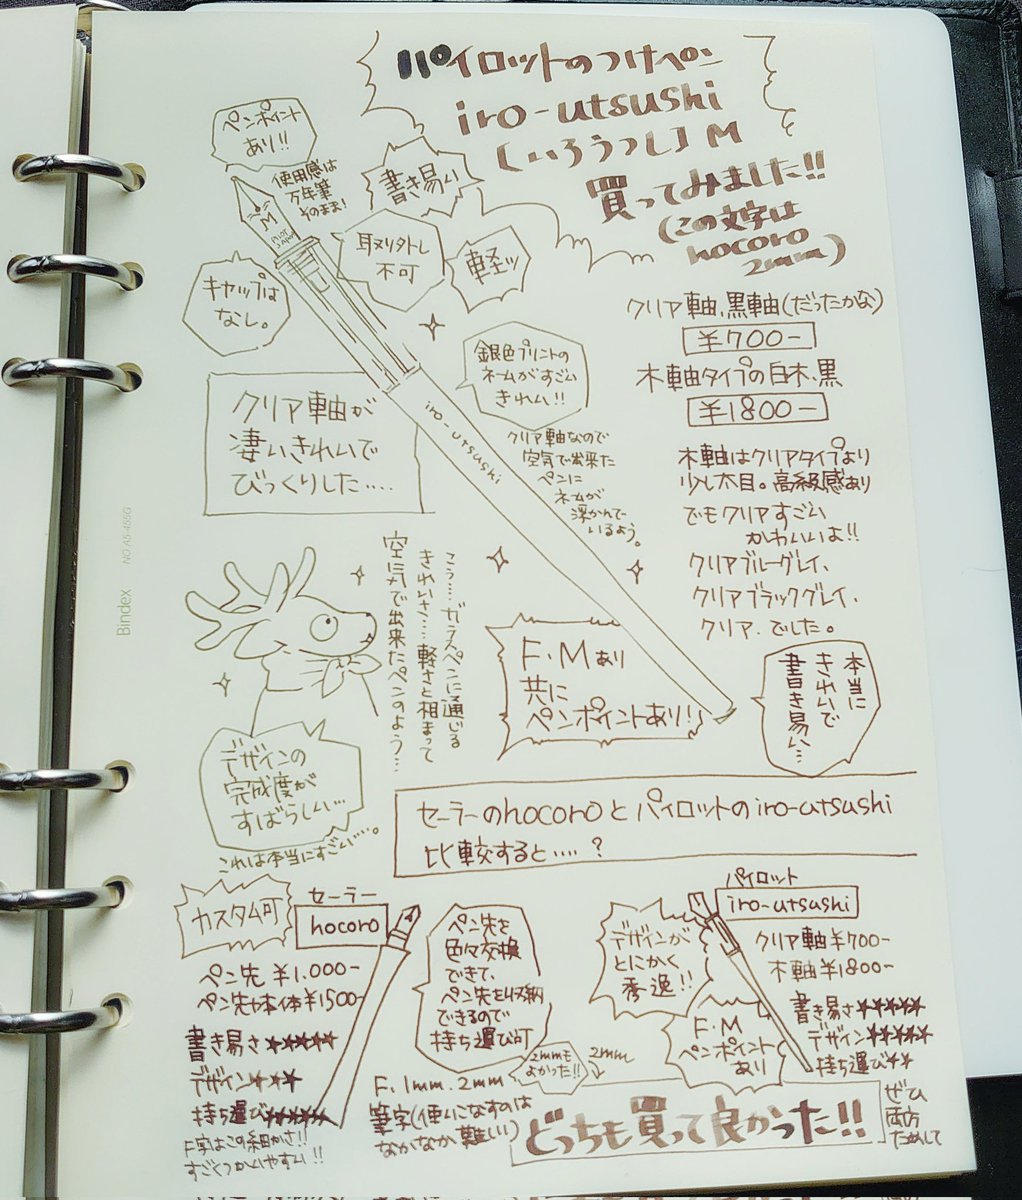 パイロットのつけペン
iro-utsushi
(いろうつし) M
買ってみました!!
(この文字は
hocoro
2mm)
てとてと
ペンポイント
あり!!
使用感は
万年筆
そのまま!
書き易い
取り外し
不可
軽ッ
キャップは
なし。
M
PILOT
JAPAN
iro-utsushi
銀色プリントの
ネームがすごい
きれい!!
クリア軸なので
空気で出来た
ペンに
ネームが
浮かんで
いるよう。
クリア軸が
凄いきれいで
びっくりした.....
クリア軸、黒軸(だったかな)
¥700-
木軸タイプの白木、黒
¥1800-
木軸はクリアタイプより
少し太目。高級感あり
でもクリアすごい
かわいいよ!!
クリアブルーグレイ、
クリアブラックグレイ、
クリア.でした。
こう....ガラスペンに通じる
きれいさ....軽さと相まって
空気で出来たペンのよう...
F・Mあり
共に
ペンポイントあり!
本当に
きれいで
書き易い...
デザインの
完成度が
すばらしい...
これは本当にすごい....。
Bindex
NO A5-465G
セーラーのhocoroとパイロットのiro-utsushi
比較すると....?
カスタム可
セーラー
hocoro
ペン先 ¥1.000-
ペン先や本体¥1500-
書き易さ★★★★★
デザイン★★★
持ち運び★★★★★
F字はこの細かさ!!
すごくつかいやすい!!
ペン先を
色々交換
できて、
ペン先を収納
できるので
持ち運び可
F.1mm.2mm
筆字(使いこなすのは
なかなか難しい)
2mmも
よかった!!
2mm
パイロット
iro-utsushi
デザインが
とにかく
秀逸!!
クリア軸¥700-
木軸¥1800-
F・M
ペンポイント
あり
書き易さ★★★★★
デザイン★★★★★
持ち運び★★
どっちも買って良かった!!
ぜひ
両方
ためして